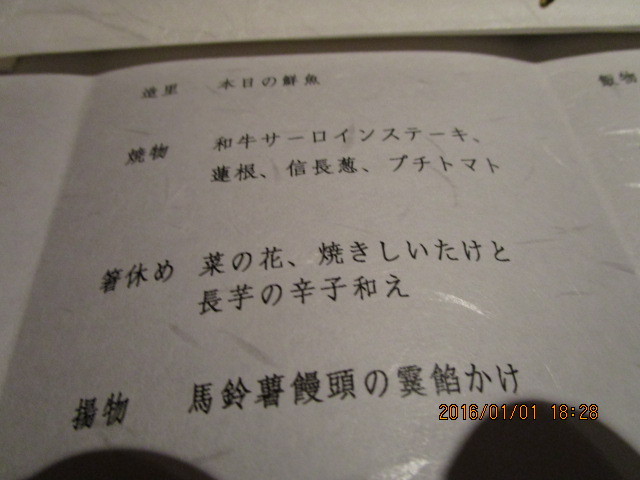 造里 本日の鮮魚
焼物 和牛サーロインステーキ、
蓮根、信長葱、プチトマト
箸休め 菜の花、焼きしいたけと
長芋の辛子和え
揚物 馬鈴薯饅頭の霙餡かけ
飯物
2016/01/01 18:28